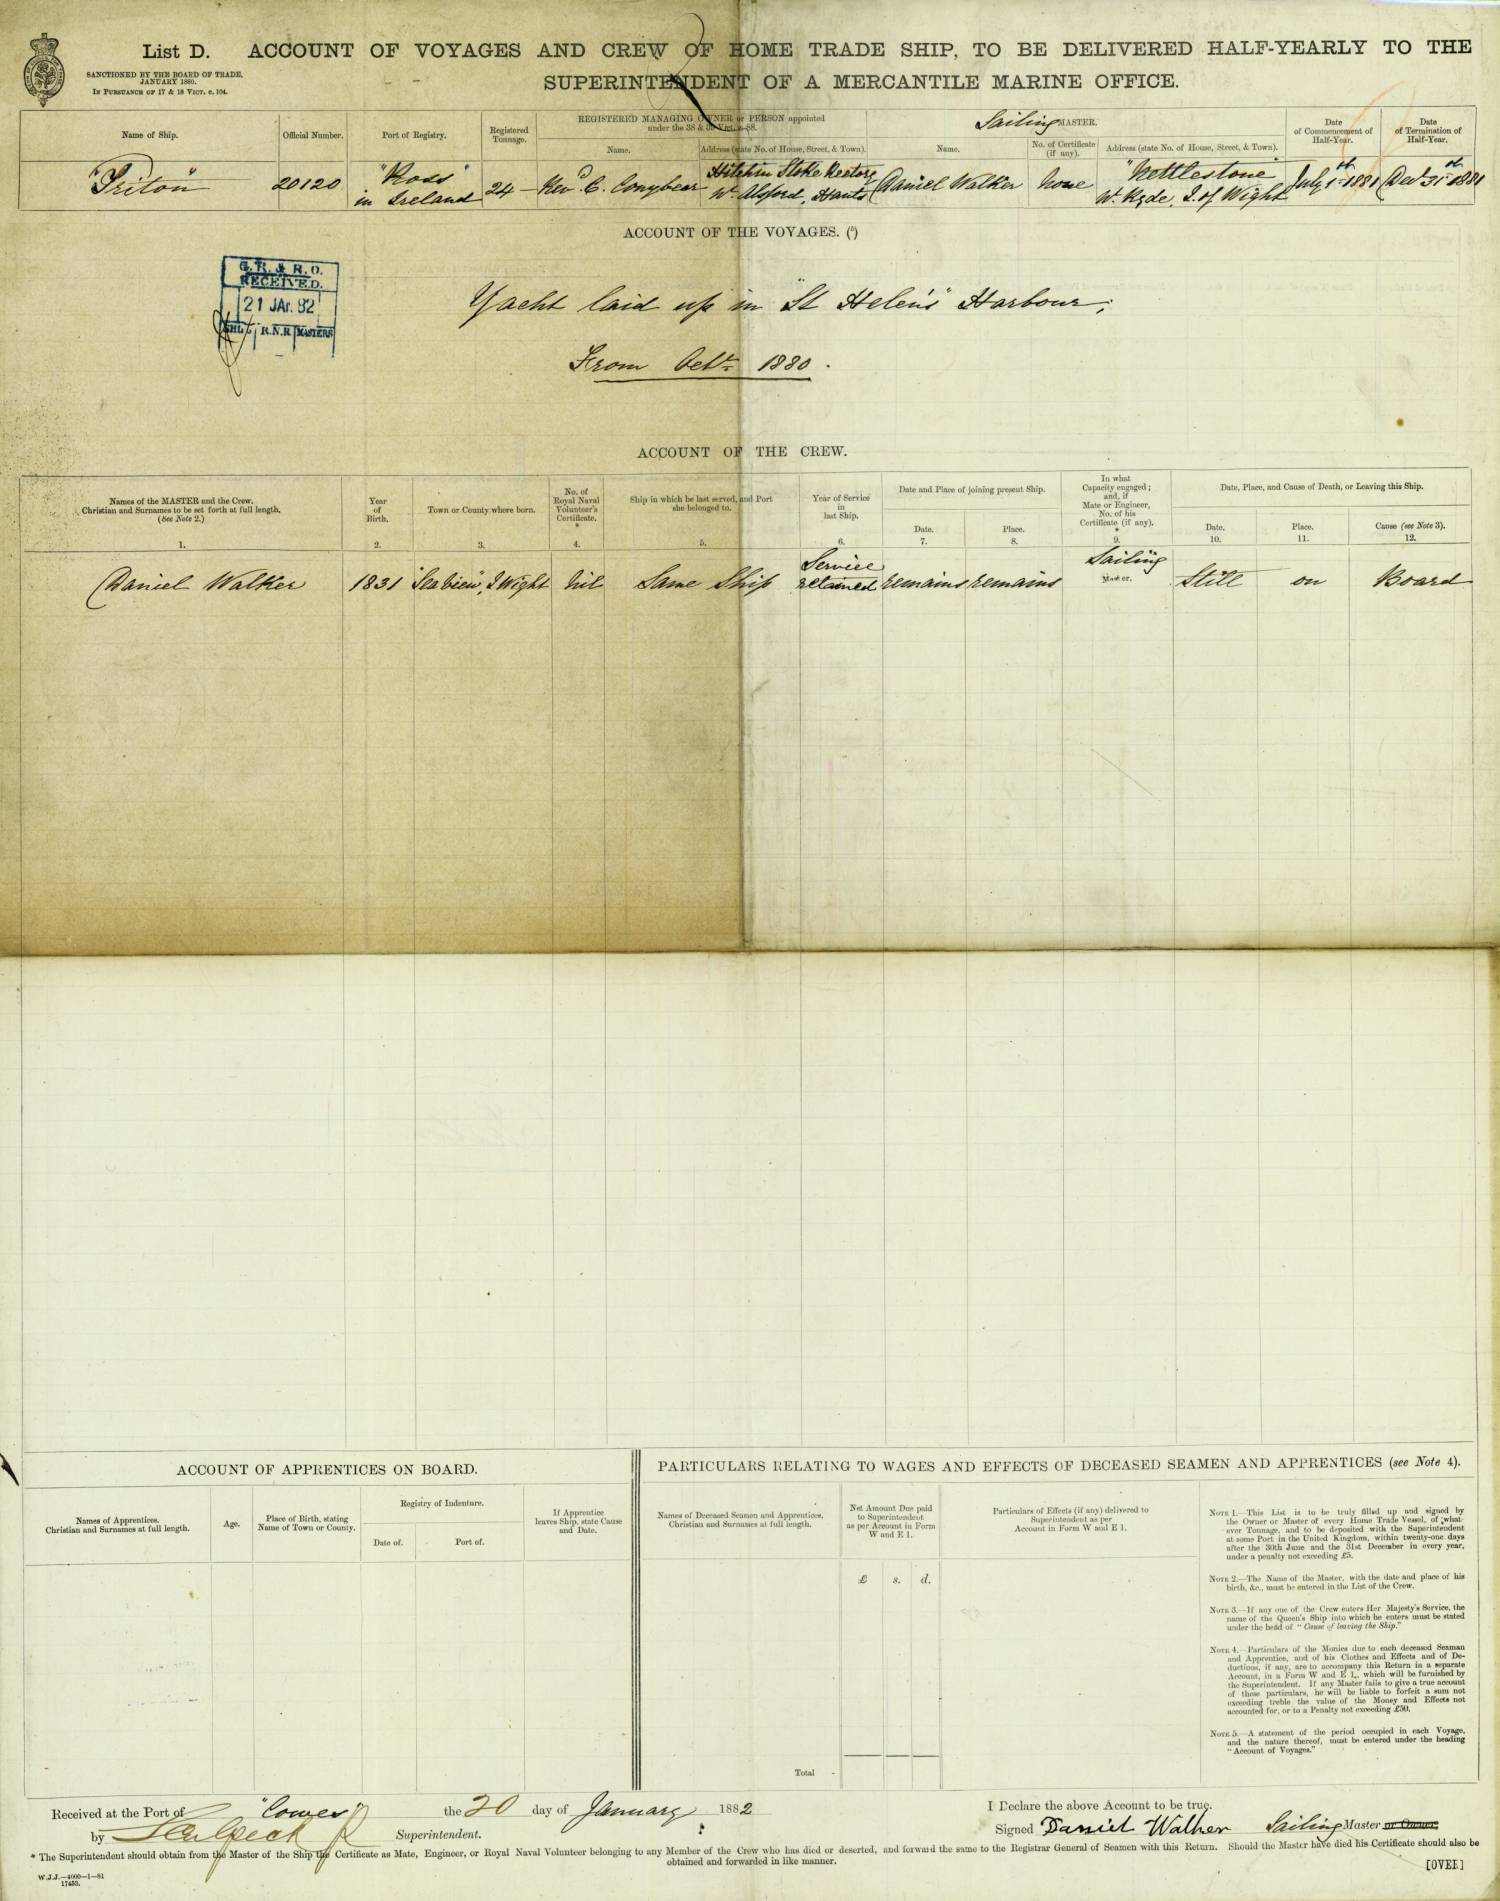 List D. ACCOUNT OF VOYAGES AND CREW OF HOME TRADE SHIP, TO BE DELIVERED HALF-YEARLY TO THE
SUPERINTENDENT OF A MERCANTILE MARINE OFFICE.
SANCTIONED BY THE BOARD OF TRADE,
JANUARY 1880.
IN PURSUANCE OF 17 & 18 VICT. c. 104.
Name of Ship.
Official Number.
Port of Registry.
Registered
Tonnage.
REGISTERED MANAGING OWNER or PERSON appointed
under the 38 & 39 Vict. c. 88.
Name.
Address (state No. of House, Street, & Town).
Sailing MASTER.
Name.
No. of Certificate
(if any).
Address (state No. of House, Street, & Town).
Date
of Commencement of
Half-Year.
Date
of Termination of
Half-Year.
"Triton"
20120
"Ross"
in Ireland
24
Revd C. Conybear
Hitchin Stoke Rectory
Nr. Alsford, Hants
Daniel Walker
None
"Nettlestone"
Nr. Ryde, I. of Wight
July 1st 1881
Decr 31st 1881
ACCOUNT OF THE VOYAGES. (5)
G. R. & R. O.
RECEIVED.
21 JAr. 82
R.N.R. MASTERS
Yacht laid up in "St Helen's" Harbour;
From Octr 1880.
ACCOUNT OF THE CREW.
Names of the MASTER and the Crew.
Christian and Surnames to be set forth at full length.
(See Note 2.)
1.
Year
of
Birth.
2.
Town or County where born.
3.
No. of
Royal Naval
Volunteer's
Certificate.
*
4.
Ship in which he last served, and Port
she belonged to.
5.
Year of Service
in
last Ship.
6.
Date and Place of joining present Ship.
Date.
7.
Place.
8.
In what
Capacity engaged;
and, if
Mate or Engineer,
No. of his
Certificate (if any).
*
9.
Date, Place, and Cause of Death, or Leaving this Ship.
Date.
10.
Place.
11.
Cause (see Note 3).
12.
Daniel Walker
1831
"Sea View", I Wight
Nil
Same Ship
Service
retained
remains
remains
Sailing
Master.
Still
on
Board
ACCOUNT OF APPRENTICES ON BOARD.
Names of Apprentices.
Christian and Surnames at full length.
Age.
Place of Birth, stating
Name of Town or County.
Registry of Indenture.
Date of.
Port of.
If Apprentice
leaves Ship, state Cause
and Date.
PARTICULARS RELATING TO WAGES AND EFFECTS OF DECEASED SEAMEN AND APPRENTICES (see Note 4).
Names of Deceased Seamen and Apprentices,
Christian and Surnames at full length.
Net Amount Due paid
to Superintendent
as per Account in Form
W and E 1.
£ s. d.
Particulars of Effects (if any) delivered to
Superintendent as per
Account in Form W and E 1.
Total -
NOTE 1.—This List is to be truly filled up and signed by
the Owner or Master of every Home Trade Vessel, of what-
ever Tonnage, and to be deposited with the Superintendent
at some Port in the United Kingdom, within twenty-one days
after the 30th June and the 31st December in every year,
under a penalty not exceeding £5.
NOTE 2.—The Name of the Master, with the date and place of his
birth, &c., must be entered in the List of the Crew.
NOTE 3.—If any one of the Crew enters Her Majesty's Service, the
name of the Queen's Ship into which he enters must be stated
under the head of "Cause of leaving the Ship."
NOTE 4.—Particulars of the Monies due to each deceased Seaman
and Apprentice, and of his Clothes and Effects and of De-
ductions, if any, are to accompany this Return in a separate
Account, in a Form W and E 1., which will be furnished by
the Superintendent. If any Master fails to give a true account
of these particulars, he will be liable to forfeit a sum not
exceeding treble the value of the Money and Effects not
accounted for, or to a Penalty not exceeding £50.
NOTE 5.—A statement of the period occupied in each Voyage,
and the nature thereof, must be entered under the heading
"Account of Voyages."
Received at the Port of "Cowes" the 20 day of January 1882
by Superintendent.
I Declare the above Account to be true.
Signed Daniel Walker Sailing Master or Owner
* The Superintendent should obtain from the Master of the Ship the Certificate as Mate, Engineer, or Royal Naval Volunteer belonging to any Member of the Crew who has died or deserted, and forward the same to the Registrar General of Seamen with this Return. Should the Master have died his Certificate should also be
obtained and forwarded in like manner.
W.J.J.—4000—1—81
17453.
[OVER]